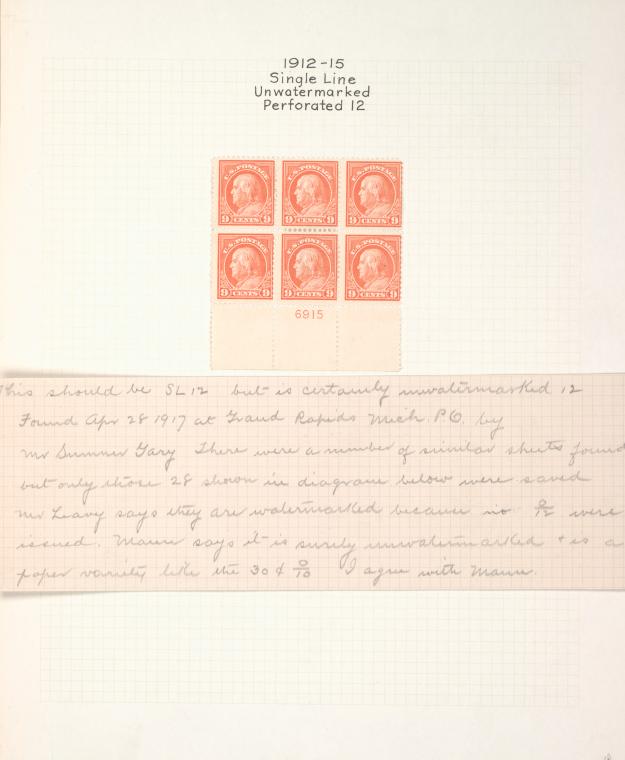 1912-15
Single Line
Unwatermarked
Perforated 12
U.S. POSTAGE U.S. POSTAGE U.S. POSTAGE
9 CENTS 9 9 CENTS 9 9 CENTS 9
U.S. POSTAGE U.S. POSTAGE U.S. POSTAGE
9 CENTS 9 9 CENTS 9 9 CENTS 9
6915
This should be SL 12 but is certainly unwatermarked 12
Found Apr 28 1917 at Grand Rapids Mich. P.O. by
Mr Sumner Gary There were a number of similar sheets found
but only those 28 shown in diagram below were saved
Mr Leavy says they are watermarked because no 0/12 were
issued. Mann says it is surely unwatermarked + is a
paper variety like the 30¢ 0/10 I agree with Mann.